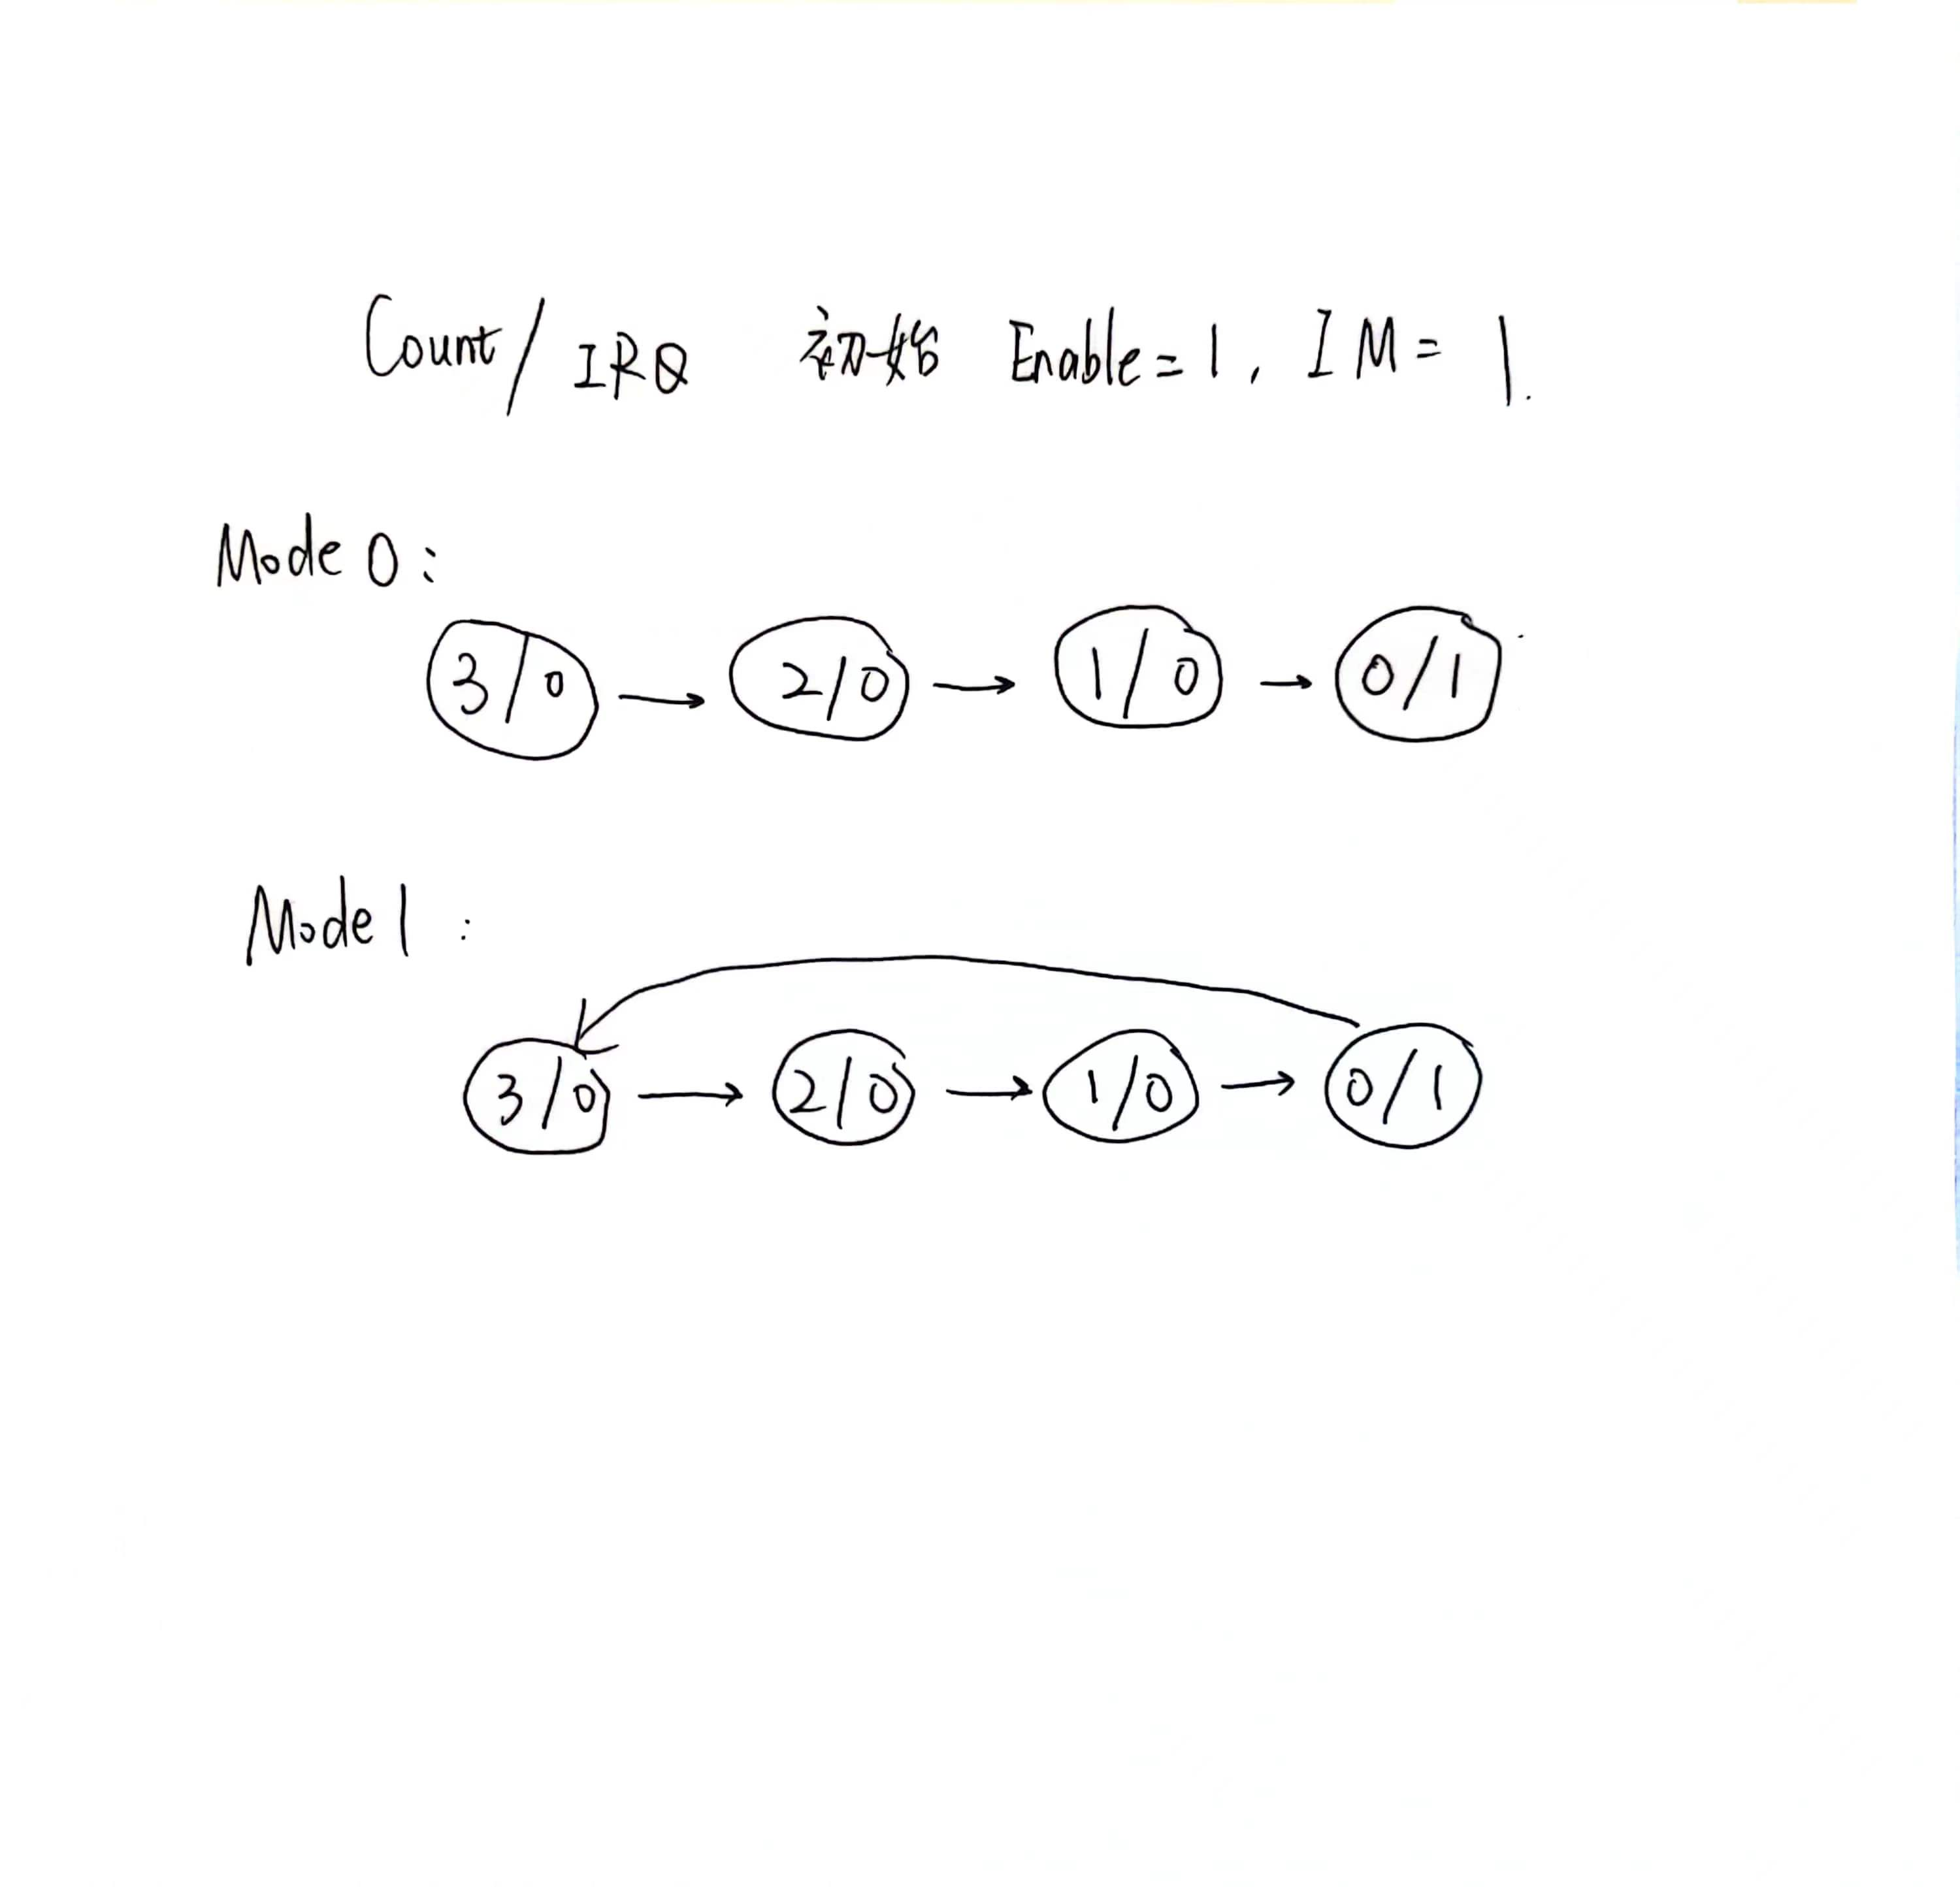 Count/IRQ 初始 Enable=1, IM=1.
Mode 0:
3/0 → 2/0 → 1/0 → 0/1
Mode 1:
3/0 → 2/0 → 1/0 → 0/1